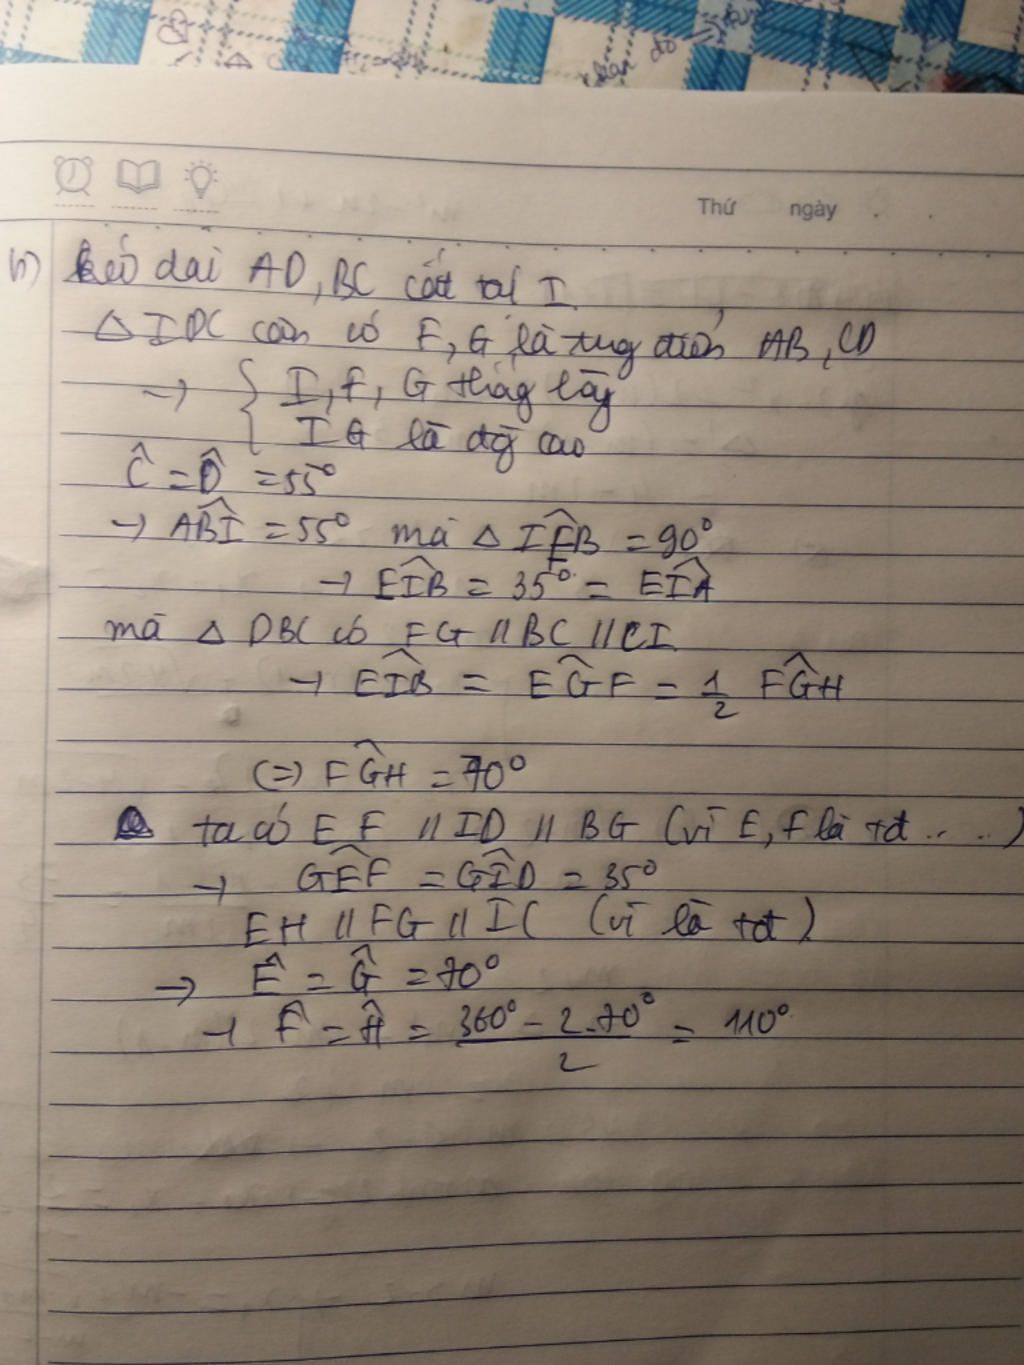 Thứ ngày
b) kéo dài AD, BC cắt tại I
△ IDC cân có E, G là tng điểm AB, CD
→ { I, F, G thẳg hàg
IG là đg cao
Ĉ = D̂ = 55°
→ AB̂I = 55° mà △ IÊB = 90°
→ EÎB = 35° = EÎA
mà △ DBC có FG // BC // CI
→ EÎB = EĜF = 1/2 FĜH
(=) FĜH = 70°
ta có EF // ID // BG (vì E, F là tđ ....)
→ GÊF = GÎD = 35°
EH // FG // IC (vì là tđ)
→ Ê = Ĝ = 70°
→ F̂ = Ĥ = (360° - 2.70°)/2 = 110°